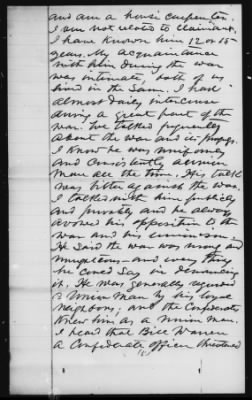 and am a house carpenter.
I am not related to claimant.
I have known him 12 or 15
years. My acquaintance
with him during the war
was intimate, both of us
lived in the same. I had
almost daily intercourse
during a great part of the
war. We talked frequently
about the war and its progress.
I know he was uniformly
and consistently a Union
man all the time. His talk
was bitter against the war.
I talked with him publicly
and privately and he always
avowed his opposition to the
war and his unionism.
He said the war was wrong and
unrighteous and every thing
he could say in denouncing
it. He was generally regarded
a Union man by his loyal
neighbors; and the Confederates
knew him as a Union man.
I heard that Bill Warren
a Confederate officer threatened